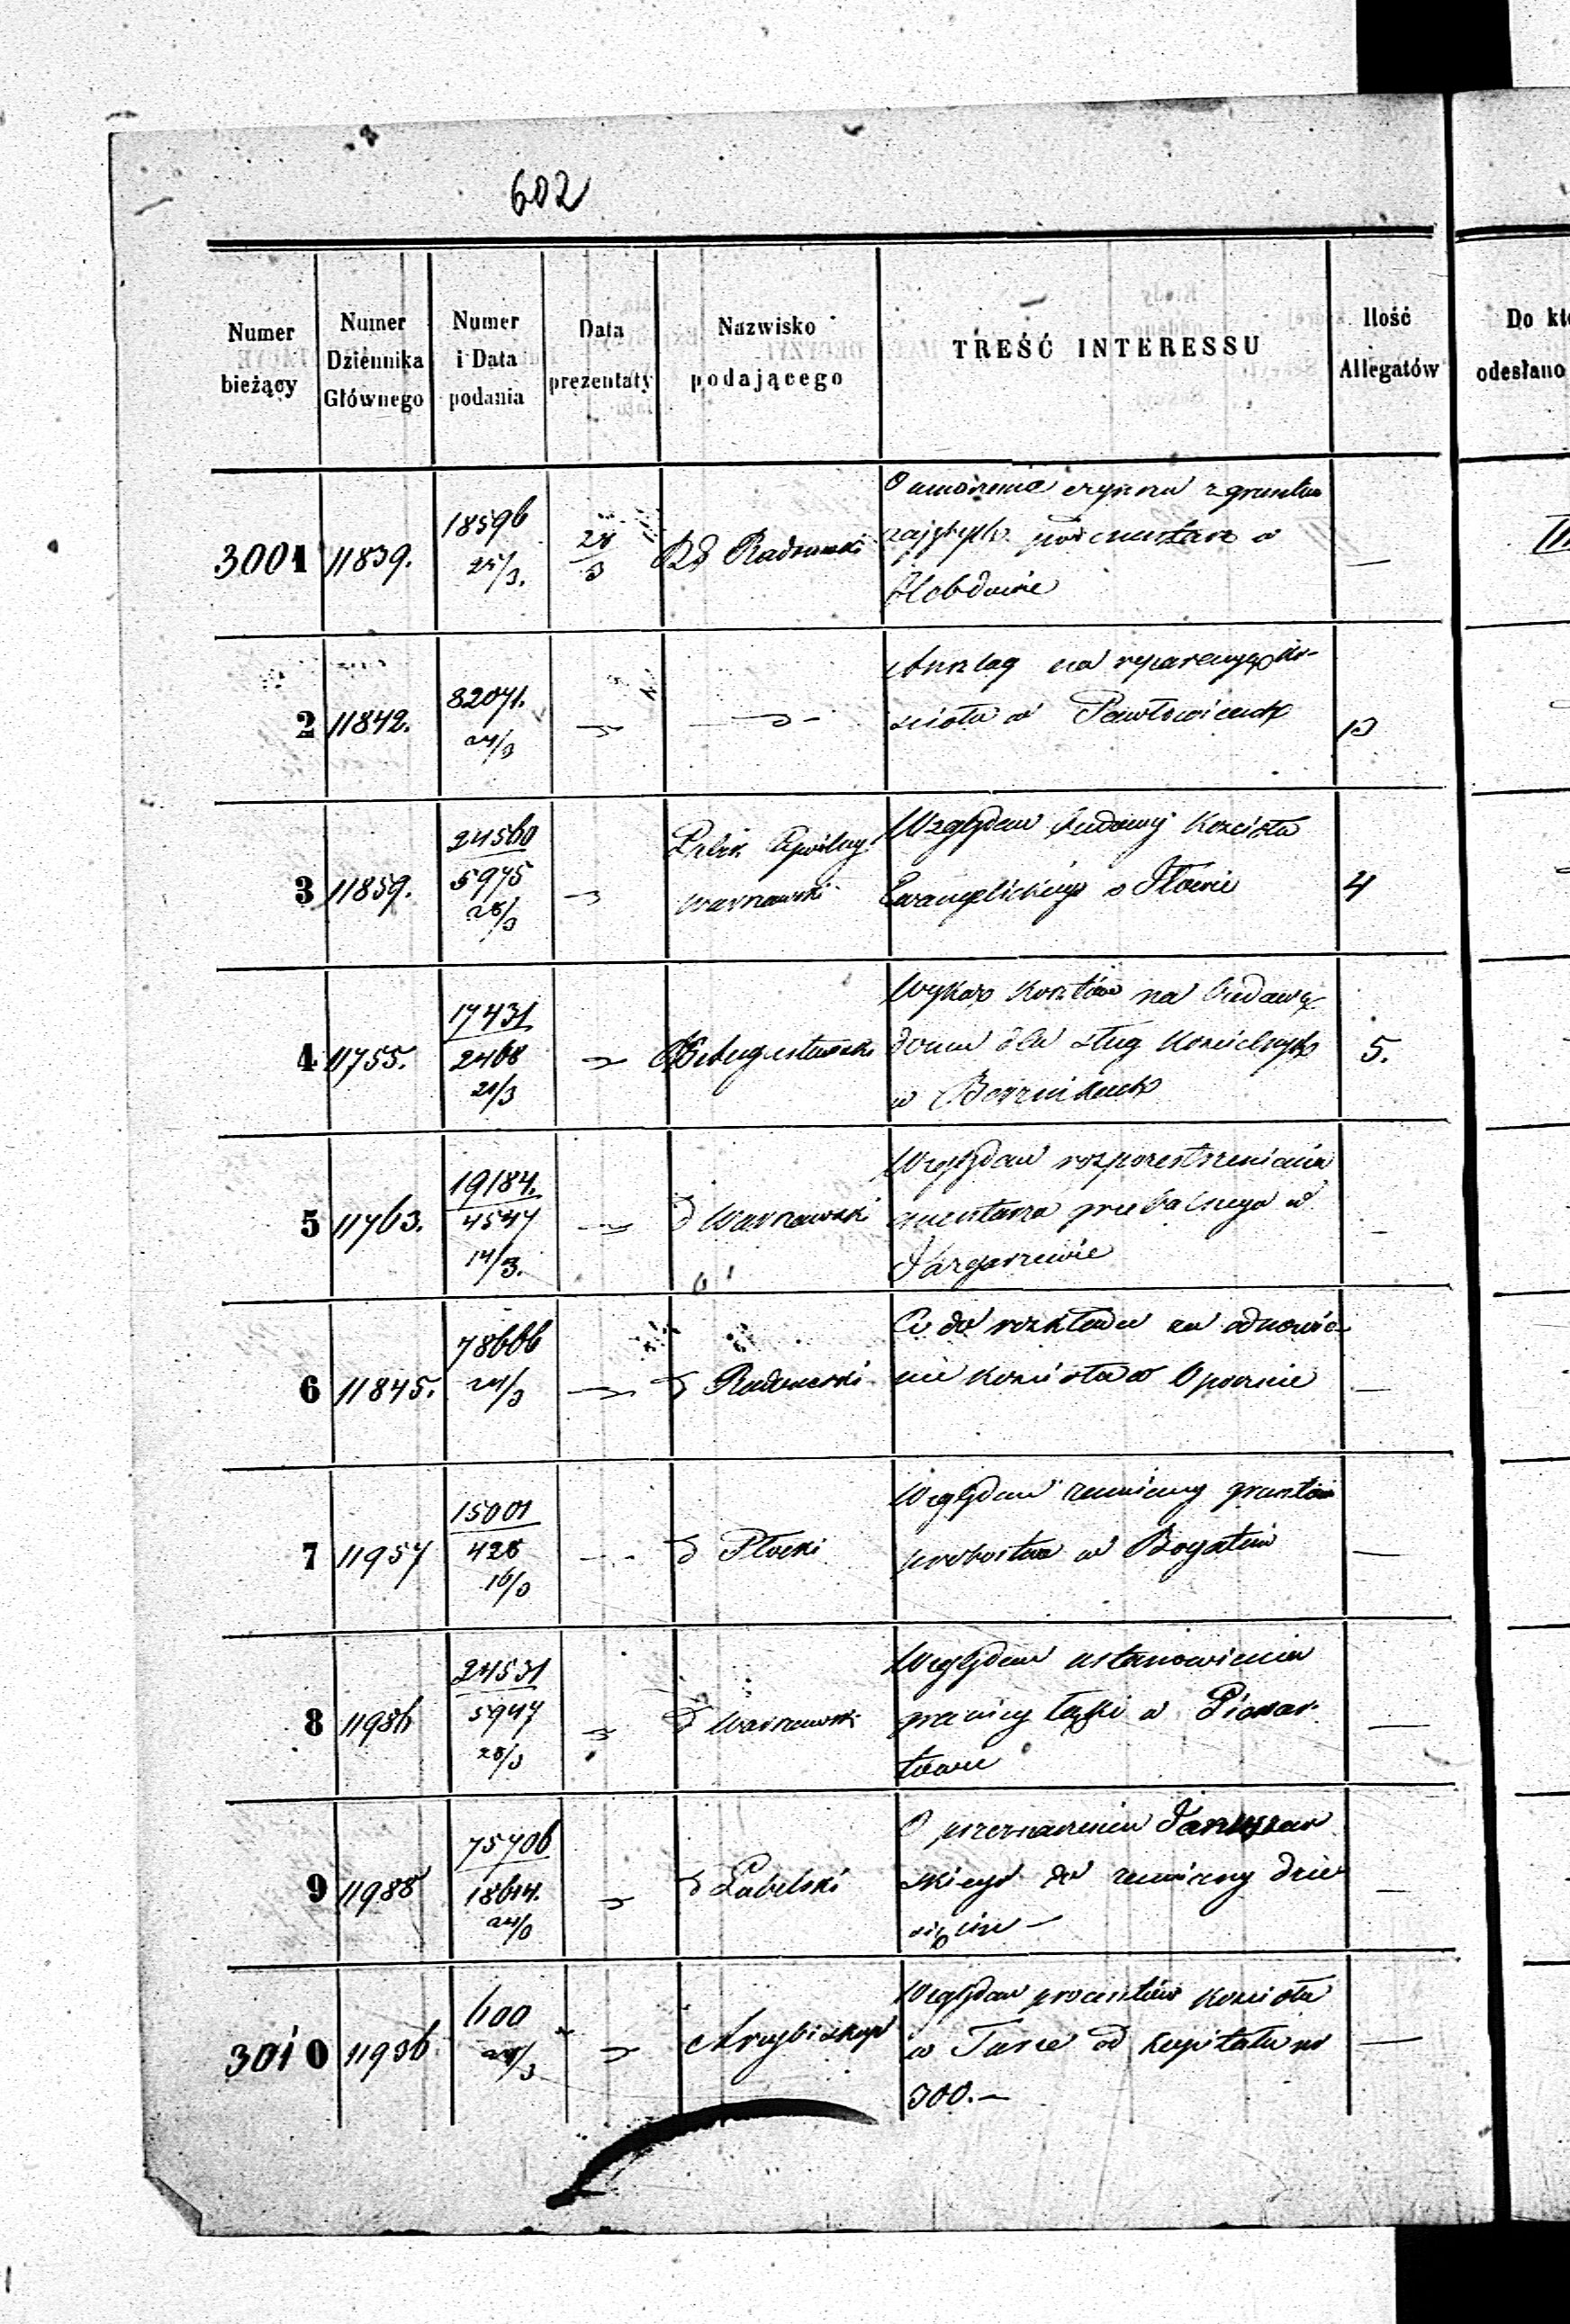 602
Numer bieżący
Numer Dziennika Głównego
Numer i Data podania
Data prezentaty
Nazwisko podającego
TREŚĆ INTERESSU
Ilość Allegatów
Do kt
odesłano
3001 11839. 18596 25/3. 28/3 Radomski
O umorzenie czynszu z gruntu
zajętych pod cmentarz w
2 11842. 82071. 24/3
Anszlag na reparacyę ko-
ścioła w Pawłowicach
3 11859. 24560 5975 28/3
Warszawski
Względem budowy Kościoła
Ewangelickiego w Iłowie
4
4 11755. 17431 2468 21/3 Augustowski
Wykaz kosztów na budowę
domu dla sług Kościelnych
w
5.
5 11763. 19184. 4547 14/3. Warszawski
Względem rozprzestrzenienia
cmentarza grzebalnego w
6 11845. 78606 24/3 Radomski
Co do rozkładu na odnowie-
nie kościoła w Opocznie
7 11957 15001 428 16/3 Płocki
Względem zamiany gruntów
probostwa w
8 11986 24531 5947 28/3 Warszawski
Względem ustanowienia
granicy łąki w
9 11988 75706 18614. 24/3 Lubelski
O
skiego do zamiany dzie
sięcin —
3010 11936 600 28/3 Arcybiskup
Względem procentów Kościoła
w Turce od kapitału
300. —